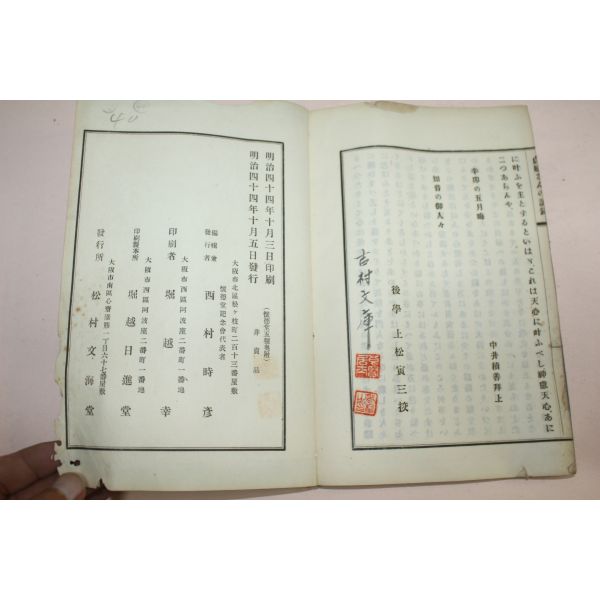 に叶ふを主とするといはゞそれは天心に叶ふべし神慮天心あに
二つあらんや
辛卯の五月晦
中井積善拜上
加番の御人々
後學 上松寅三挍
吉村文庫
明治四十四年十月三日印刷
明治四十四年十月五日發行
(懷德堂五種奥附)
非賣品
大阪市北區松ヶ枝町二百十三番屋敷
懷德堂記念會代表者
編輯兼
發行者 西村時彦
大阪市西區阿波座二番町一番地
印刷者 堀越幸
大阪市西區阿波座二番町一番地
印刷製本所 堀越日進堂
大阪市南區心齋橋筋一丁目六十七番屋敷
發行所 松村文海堂